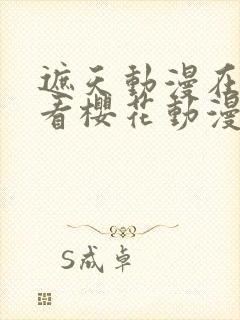 遮天動漫在
看櫻花動漫
S成卓